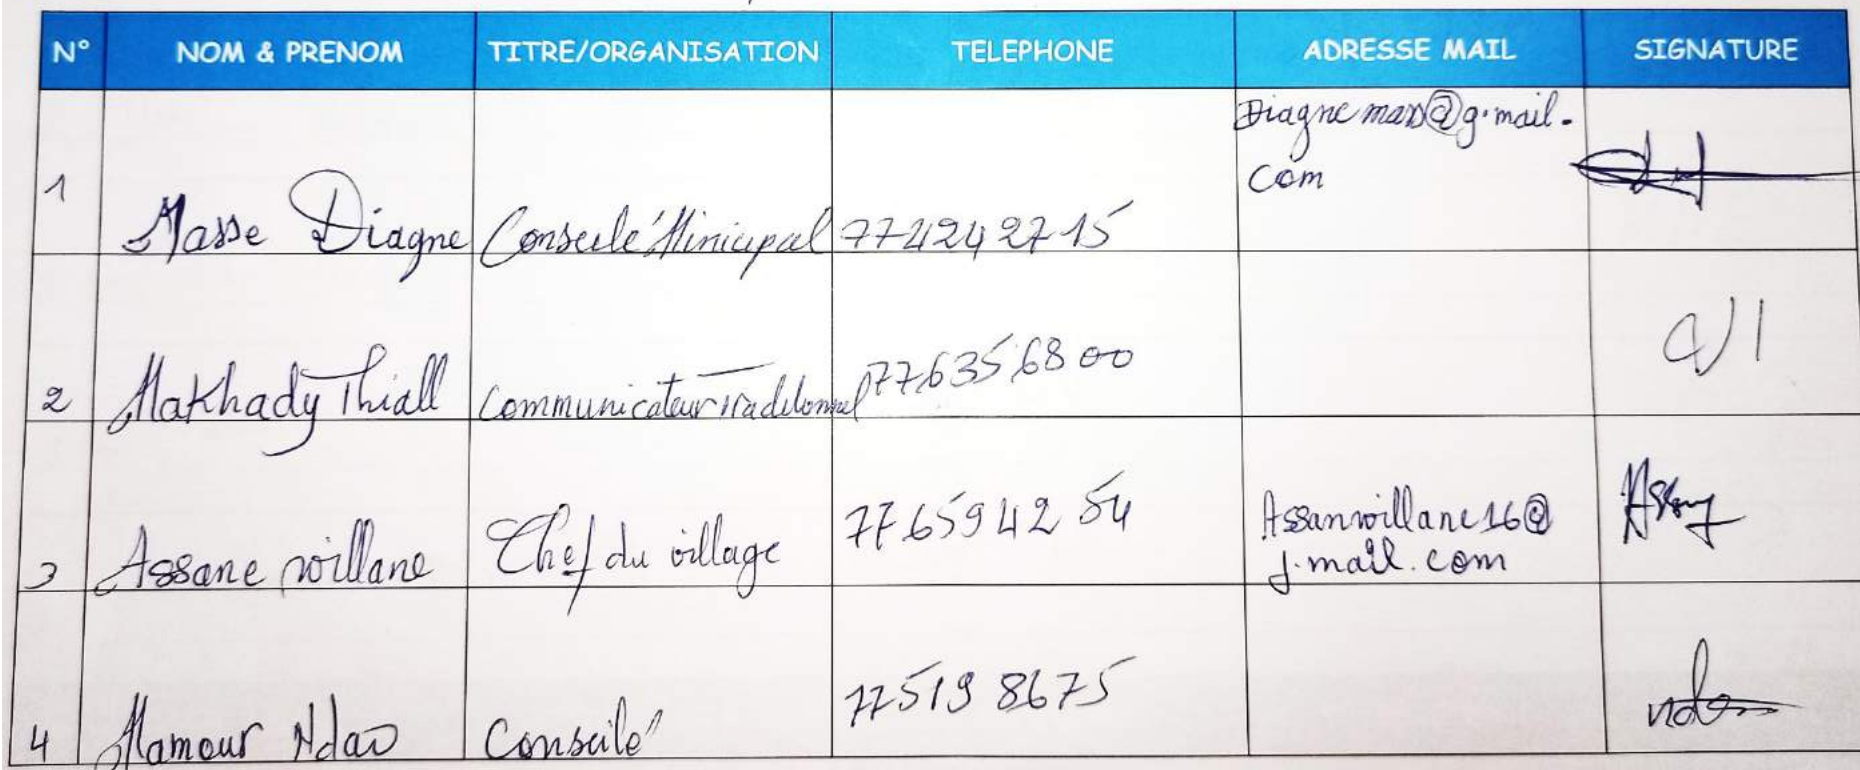 N° NOM & PRENOM TITRE/ORGANISATION TELEPHONE ADRESSE MAIL SIGNATURE
1 Masse Diagne Conseile' Minicipal 77 424 27 15 Diagne mass@g.mail.
com
2 Makhady Thiall Communicateur Traditonnel 77 635 68 00
3 Assane willane Chef du village 77 659 42 54 Assanwillane16@
j.mail.com
4 Mamour Ndao Conseile' 77 519 86 75